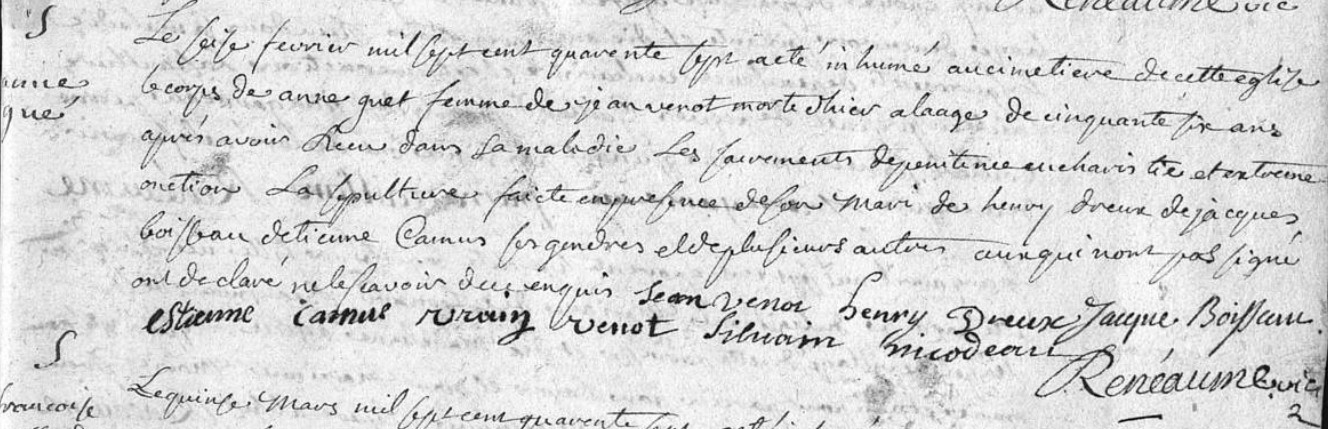 Reneaume vic
S
Le seise fevrier mil sept cent quarente sept acté inhumé aucimetiere decette eglise
anne le corps de anne guet femme de jean venot morte dhier alaage de cinquante six ans
gué après avoir Receu dans sa maladie Les sacrements depenitence eucharistie et extreme
onction La sepulture faicte enpresence deson mari de henry dreux dejacques
boisseau detienne Camus ses gendres et deplusieurs autres ceux qui nont pas signé
ont declaré nelescavoir dece enquis Jean venot henry Dreux Jacque Boisseau
estienne Camus vrain venot silvain nicodeau
Renéaume vic
S
francoise Lequinse Mars mil sept cent quarente sept
2